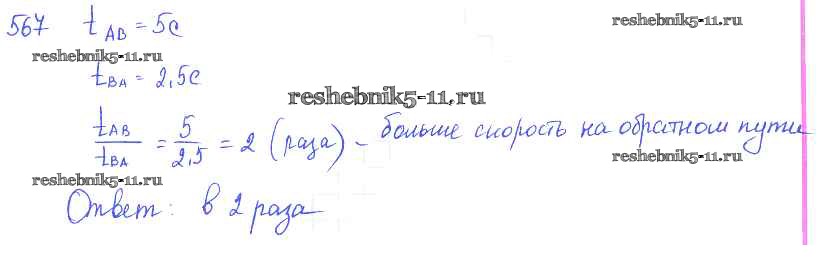 567 t_AB = 5с
reshebnik5-11.ru
reshebnik5-11.ru
t_BA = 2,5с
reshebnik5-11.ru
t_AB / t_BA = 5 / 2,5 = 2 (раза) – больше скорость на обратном пути
reshebnik5-11.ru
reshebnik5-11.ru
Ответ: в 2 раза